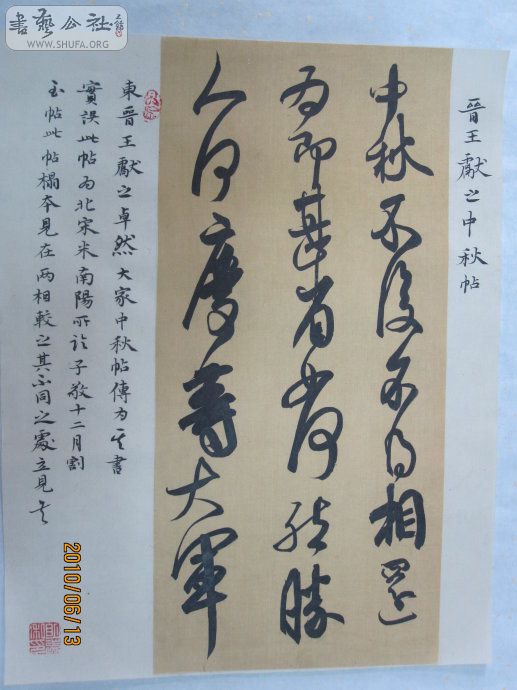 書藝公社
WWW.SHUFA.ORG
晉王獻之中秋帖
中秋不復不得相還
為即甚省如何然勝
人何慶等大軍
東晉王獻之卓然大家中秋帖傳為其書
實誤此帖為北宋米南陽所臨子敬十二月割
至帖此帖榻本見在兩相較之其不同之處立見矣
2010/06/13